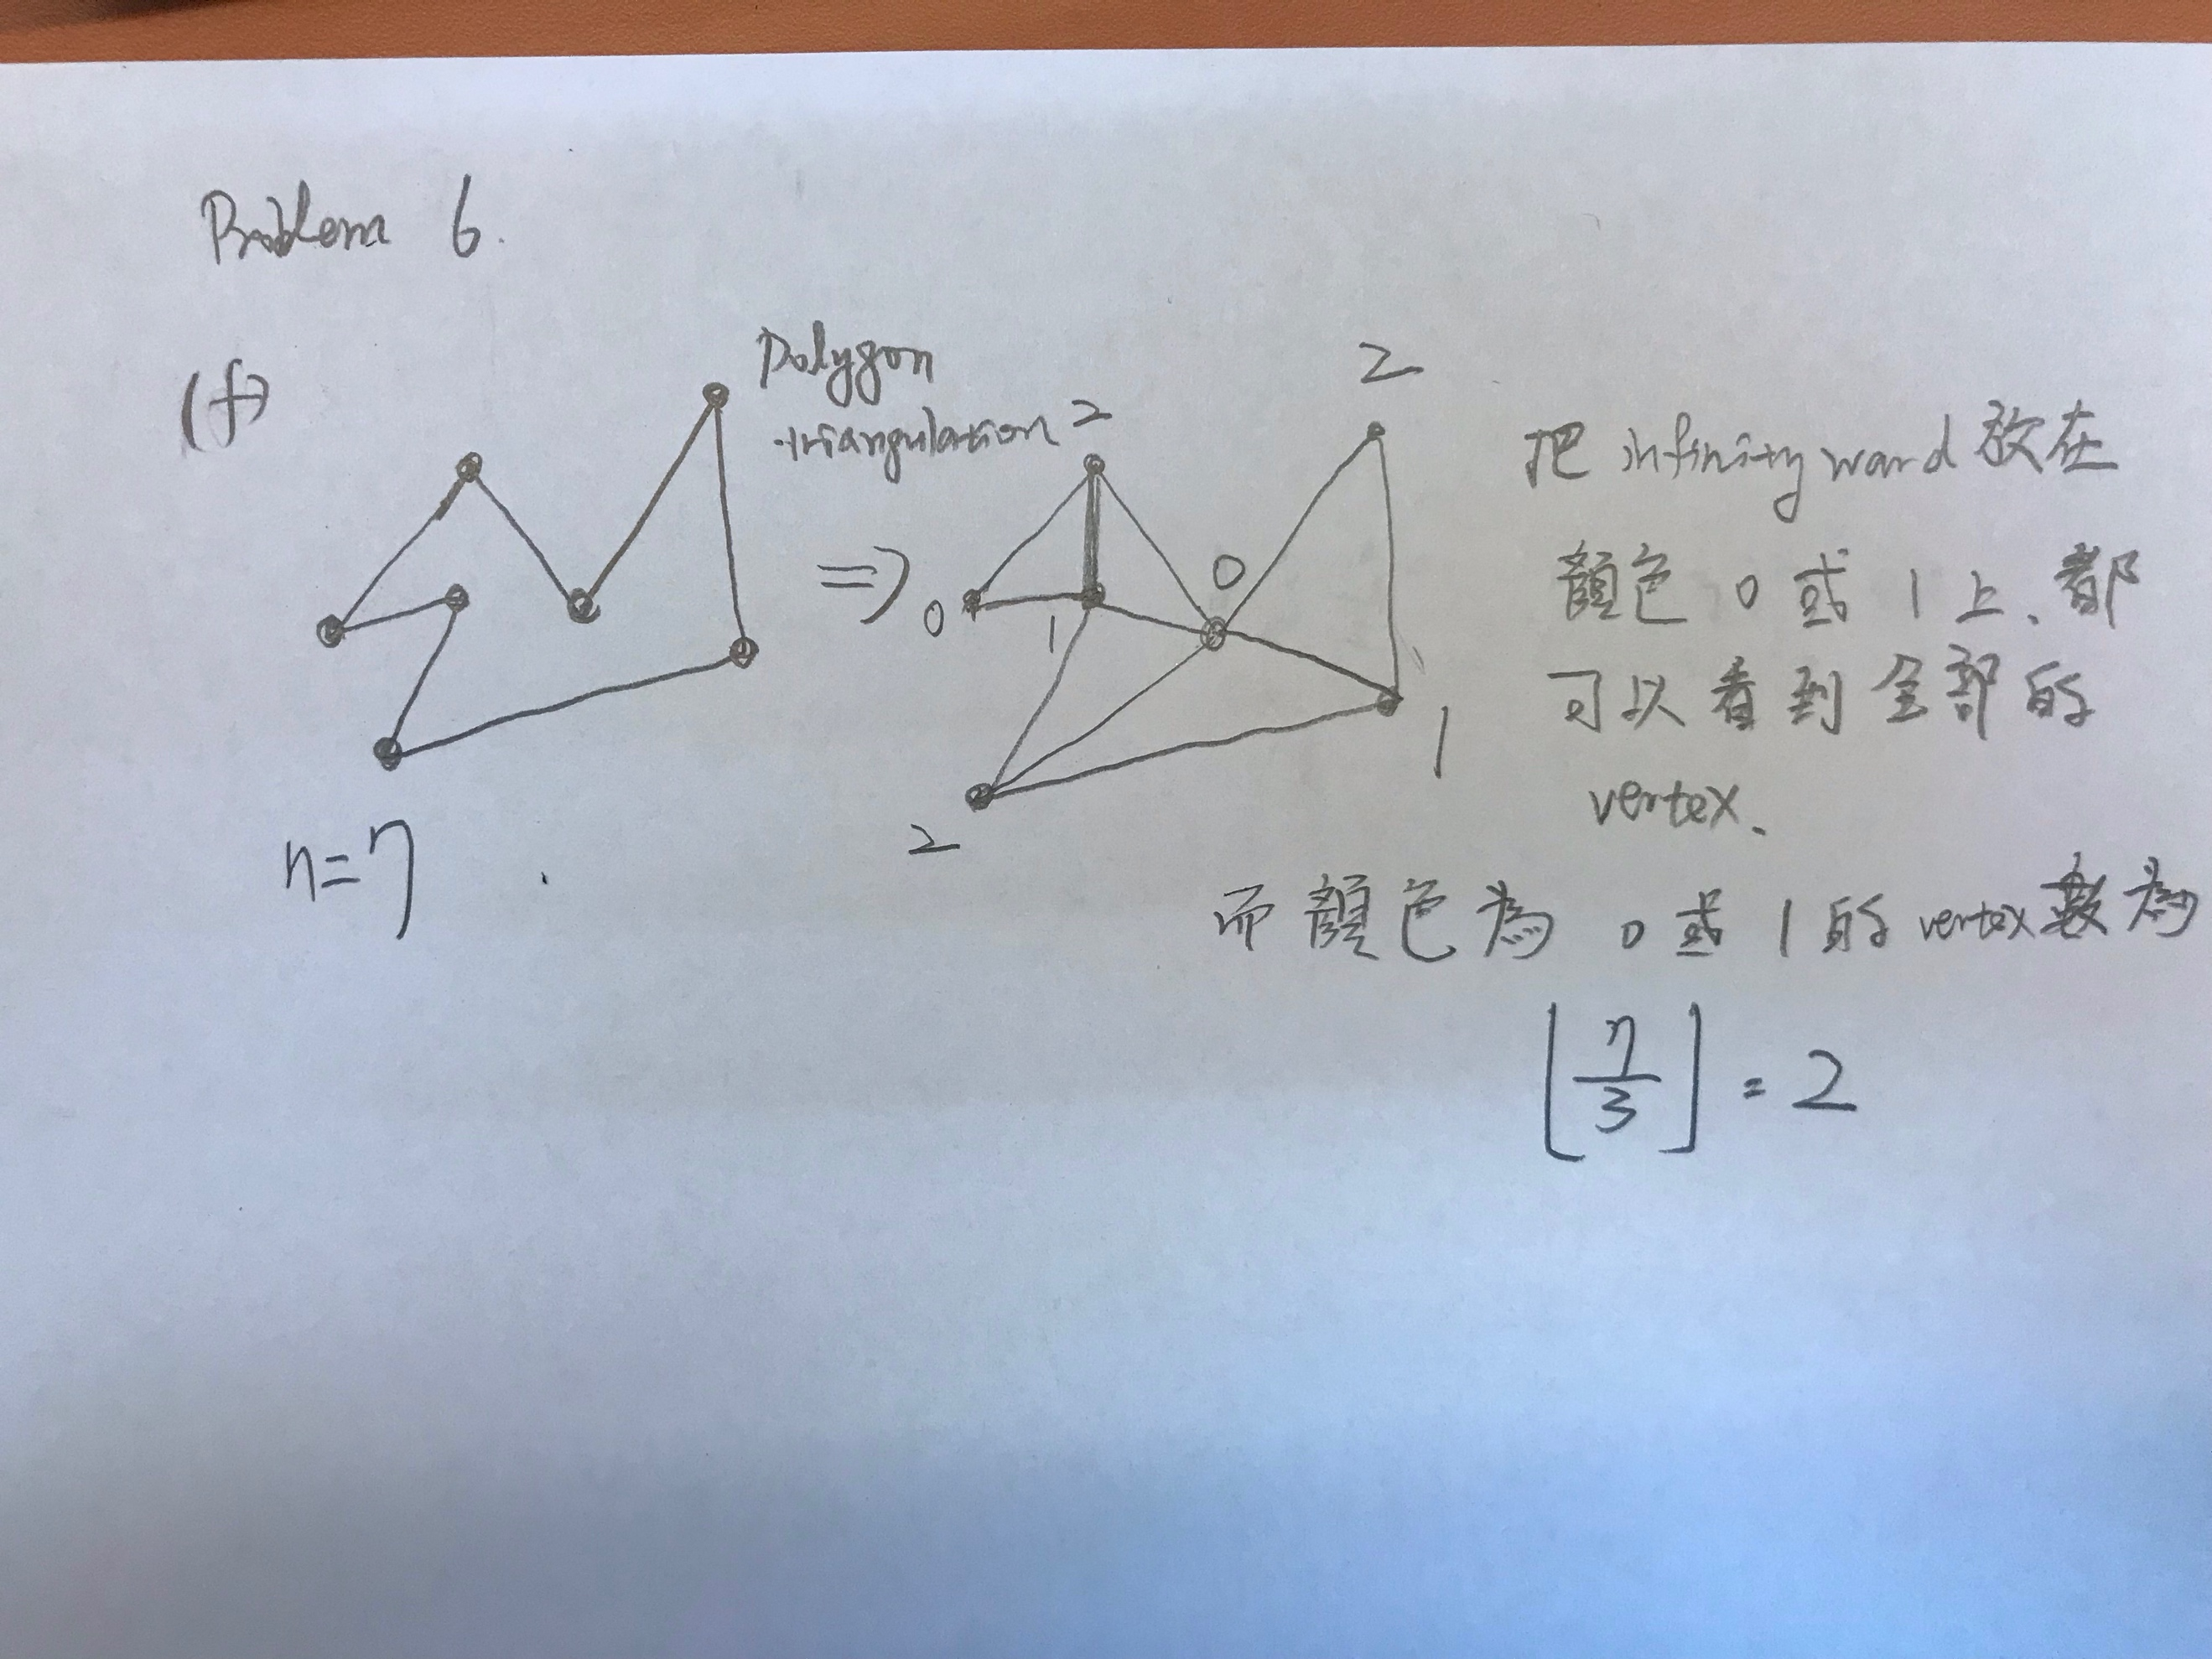 Problem 6.
(f)
Polygon
triangulation
n=7
⇒
2
0
1
0
2
1
2
把 infinity ward 放在
顏色 0 或 1 上、都
可以看到全部的
vertex、
而顏色為 0 或 1 的 vertex 數為
⌊7/3⌋ = 2